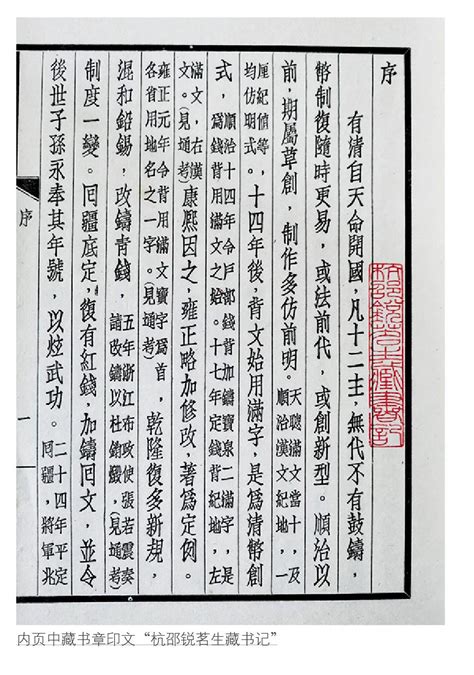 序
有清自天命開國，凡十二主，無代不有鼓鑄，
幣制復隨時更易，或法前代，或創新型。順治以
前，期屬草創，制作多仿前明。天聰滿文當十，及順治漢文紀地，一
厘紀值等，均仿明式。十四年後，背文始用滿字，是爲清幣創
式，順治十四年令戶部錢背加鑄寶泉二滿字，是爲錢背用滿文之始。十七年定錢背紀地，左
滿文，右漢文。(見通考)康熙因之，雍正略加修改，著爲定例。
雍正元年令背用滿文寶字爲首，各省用地名之一字。(見通考)乾隆復多新規，
混和鉛錫，改鑄青錢，五年浙江布政使張若震奏請改鑄以杜銷燬，(見通考)
制度一變。囘疆底定，復有紅錢，加鑄囘文，並令
後世子孫永奉其年號，以炫武功。二十四年平定囘疆，將軍兆
序
一
杭邵銳茗生藏書記
内页中藏书章印文“杭邵锐茗生藏书记”